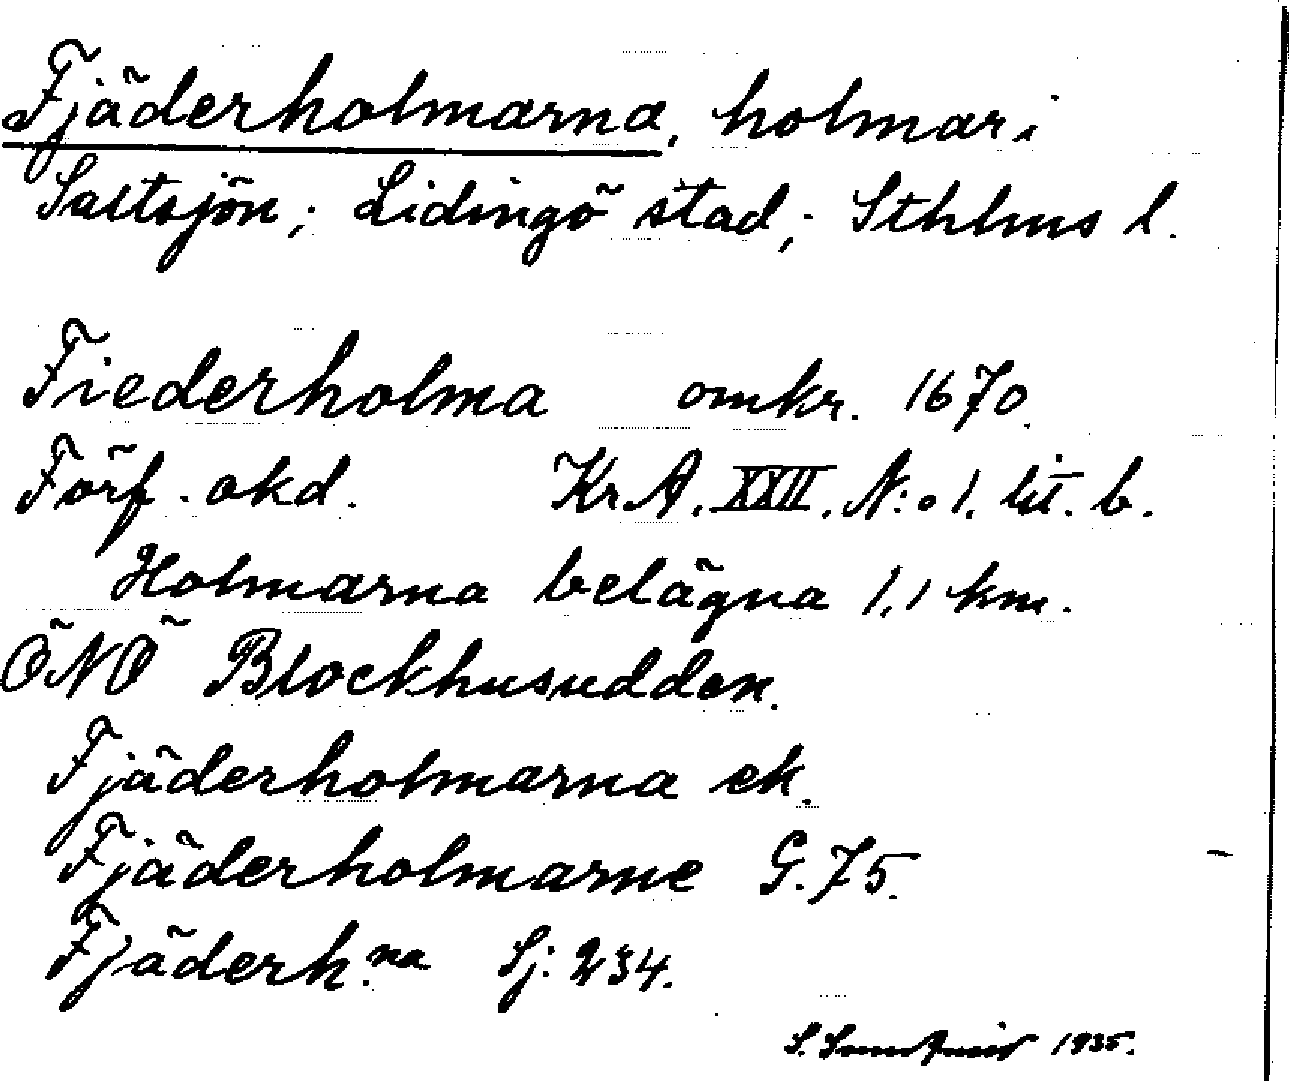 Fjäderholmarna, holmar i
Saltsjön; Lidingö stad; Sthlms l.
Fiederholma omkr. 1670.
Förf. okd. Kr.A. XXII. N:o 1. lit. b.
Holmarna belägna 1,1 km.
ÖNÖ Blockhusudden.
Fjäderholmarna ek.
Fjäderholmarne G. 75.
Fjäderh.na Sj: 234.
S. 1935.